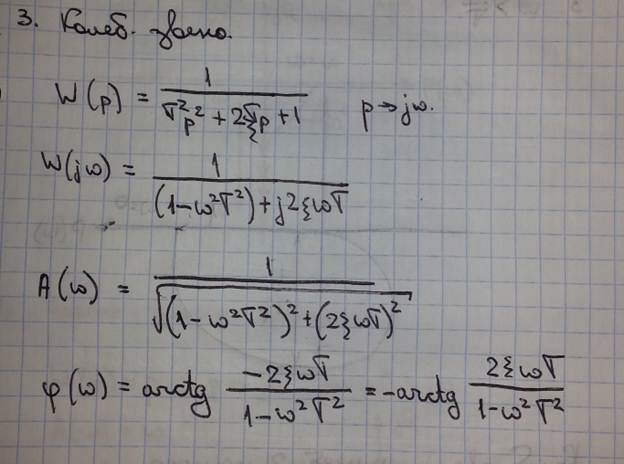 3. Колеб. звено.
W(p) = 1 / (T²p² + 2Tξp + 1)   p → jω.
W(jω) = 1 / ((1-ω²T²) + j2ξωT)
A(ω) = 1 / √((1-ω²T²)² + (2ξωT)²)
φ(ω) = arctg (-2ξωT / (1-ω²T²)) = -arctg (2ξωT / (1-ω²T²))